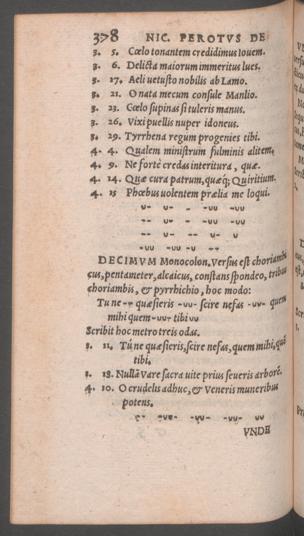 378 NIC. PEROTVS DE
3. 5. Cœlo tonantem credidimus Iouem.
3. 6. Delicta maiorum immeritus lues.
3. 17. Aeli uetusto nobilis ab Lamo.
3. 21. O nata mecum consule Manlio.
3. 23. Cœlo supinas si tuleris manus.
3. 26. Vixi puellis nuper idoneus.
3. 29. Tyrrhena regum progenies tibi.
4. 4. Qualem ministrum fulminis alitem.
4. 9. Ne forté credas interitura, quæ.
4. 14. Quæ cura patrum, quæq; Quiritium.
4. 15 Phœbus uolentem prælia me loqui.
DECIMVM Monocolon, Versus est choriambi
cus, pentameter, alcaicus, constans spondeo, tribus
choriambis, & pyrrhichio, hoc modo:
Tu ne quæsieris scire nefas quem
mihi quem tibi
Scribit hoc metro treis odas.
1. 11. Tú ne quæsieris, scire nefas, quem mihi, quē
tibi.
1. 18. Nullā Vare sacra uite prius seueris arborē.
4. 10. O crudelis adhuc, & Veneris muneribus
potens.
VNDE